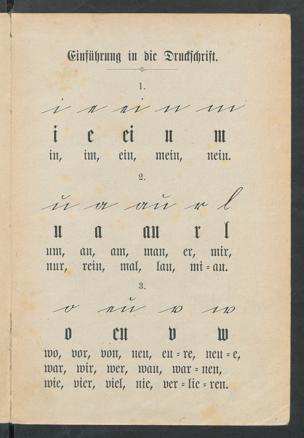 Einführung in die Druckschrift.
1.
i e ei n m
i e ei n m
in, im, ein, mein, nein.
2.
u a au r l
u a au r l
um, an, am, man, er, mir,
nur, rein, mal, lau, mi=au.
3.
o eu v w
o eu v w
wo, vor, von, neu, eu=re, neu=e,
war, wir, wer, wau, war=nen,
wie, vier, viel, nie, ver=lie=ren.